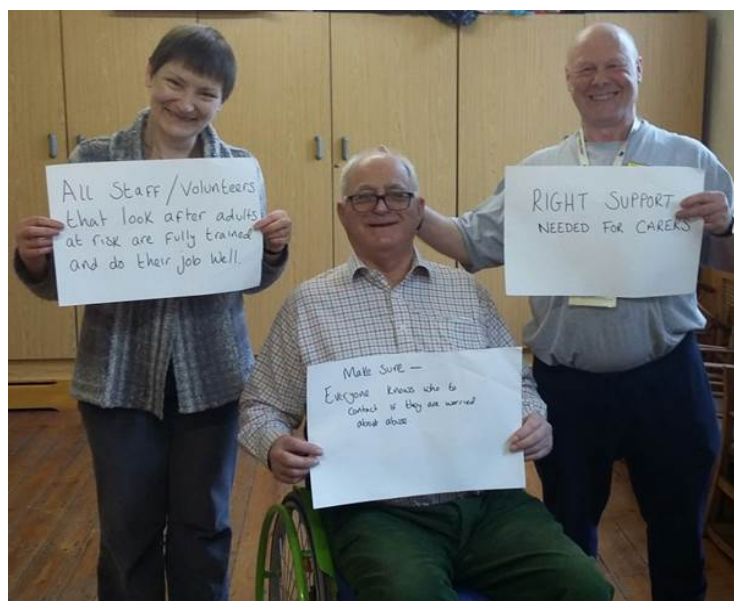 All Staff/Volunteers
that look after adults
at risk are fully trained
and do their job well.
Make sure —
Everyone knows who to
contact if they are worried
about abuse
RIGHT SUPPORT
NEEDED FOR CARERS